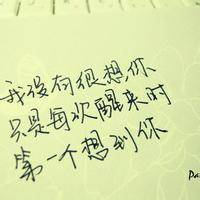 我没有很想你
只是每次醒来时
第一个想到你
Pa